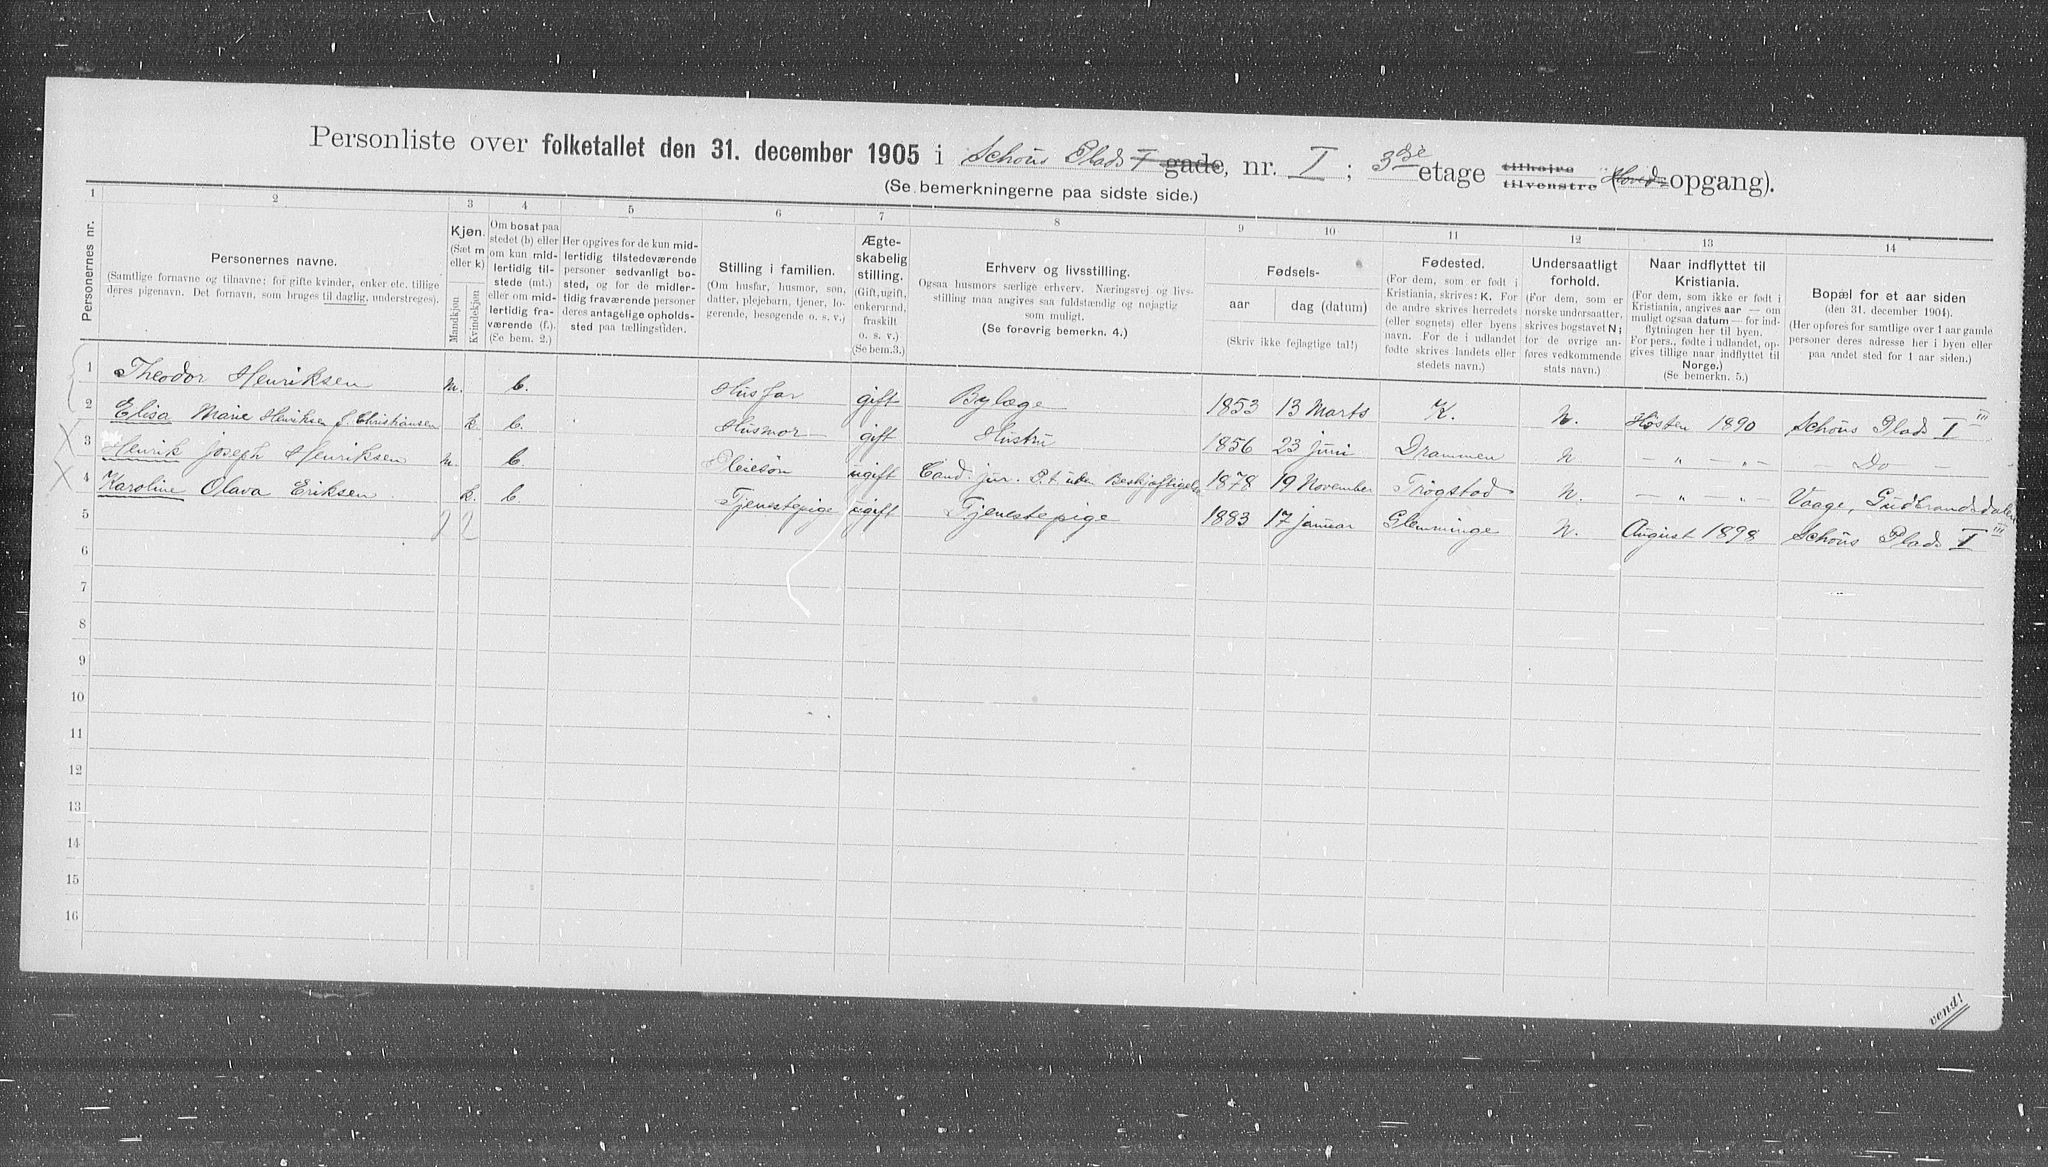 Personliste over folketallet den 31. december 1905 i Schous Plads I gade, nr. I; 3die etage tilhøire tilvenstre (Hoved-opgang).
(Se bemerkningerne paa sidste side.)
1 2 3 4 5 6 7 8 9 10 11 12 13 14
Personernes nr.
Personernes navne.
(Samtlige fornavne og tilnavne; for gifte kvinder, enker etc. tillige
deres pigenavn. Det fornavn, som bruges til daglig, understreges).
Kjøn.
(Sæt m
eller k)
Mandkjøn
Kvindekjøn
Om bosat paa
stedet (b) eller
om kun mid-
lertidig til-
stede (mt.)
eller om mid-
lertidig fra-
værende (f.).
(Se bem. 2.)
Her opgives for de kun mid-
lertidig tilstedeværende
personer sedvanligt bo-
sted, og for de midler-
tidig fraværende personer
deres antagelige opholds-
sted paa tællingstiden.
Stilling i familien.
(Om husfar, husmor, søn,
datter, plejebarn, tjener, lo-
gerende, besøgende o. s. v.)
Ægte-
skabelig
stilling.
(Gift, ugift,
enkemand,
fraskilt
o. s. v.)
(Se bem. 3.)
Erhverv og livsstilling.
Ogsaa husmors særlige erhverv. Næringsvej og livs-
stilling maa angives saa fuldstændig og nøjagtig
som muligt.
(Se forøvrig bemerkn. 4.)
Fødsels-
aar
dag (datum)
(Skriv ikke fejlagtige tal!)
Fødested.
(For dem, som er født i
Kristiania, skrives: K. For
de andre skrives herredets
(eller sognets) eller byens
navn. For de i udlandet
fødte skrives landets eller
stedets navn.)
Undersaatligt
forhold.
(For dem, som er
norske undersaatter,
skrives bogstavet N;
for de øvrige an-
føres vedkommende
stats navn.)
Naar indflyttet til
Kristiania.
(For dem, som ikke er født i
Kristiania, angives aar — om
muligt ogsaa datum — for ind-
flytningen her til byen.
For pers., fødte i udlandet, op-
gives tillige naar indflyttet til
Norge.)
(Se bemerkn. 5.)
Bopæl for et aar siden
(den 31. december 1904).
(Her opføres for samtlige over 1 aar gamle
personer deres adresse her i byen eller
paa andet sted for 1 aar siden.)
1 Theodor Henriksen m. b. Husfar gift Bylæge 1853 13 Marts K. N. Høsten 1890 Schous Plads I III
2 Elisa Marie Henriksen f. Christiansen k. b. Husmor gift Hustru 1856 23 Juni Drammen N — „ — „ — — Do —
3 Henrik Joseph Henriksen m. b. Pleiesøn ugift Cand. jur. P. t. uden Beskjæftigelse 1878 19 November Trøgstad N. — „ — „ — Vaage, Gudbrandsdalen
4 Karoline Olava Eriksen k. b. Tjenestepige ugift Tjenestepige 1883 17 januar Glemminge N. August 1898 Schous Plads I III
5 2 2
6
7
8
9
10
11
12
13
14
15
16
vend!